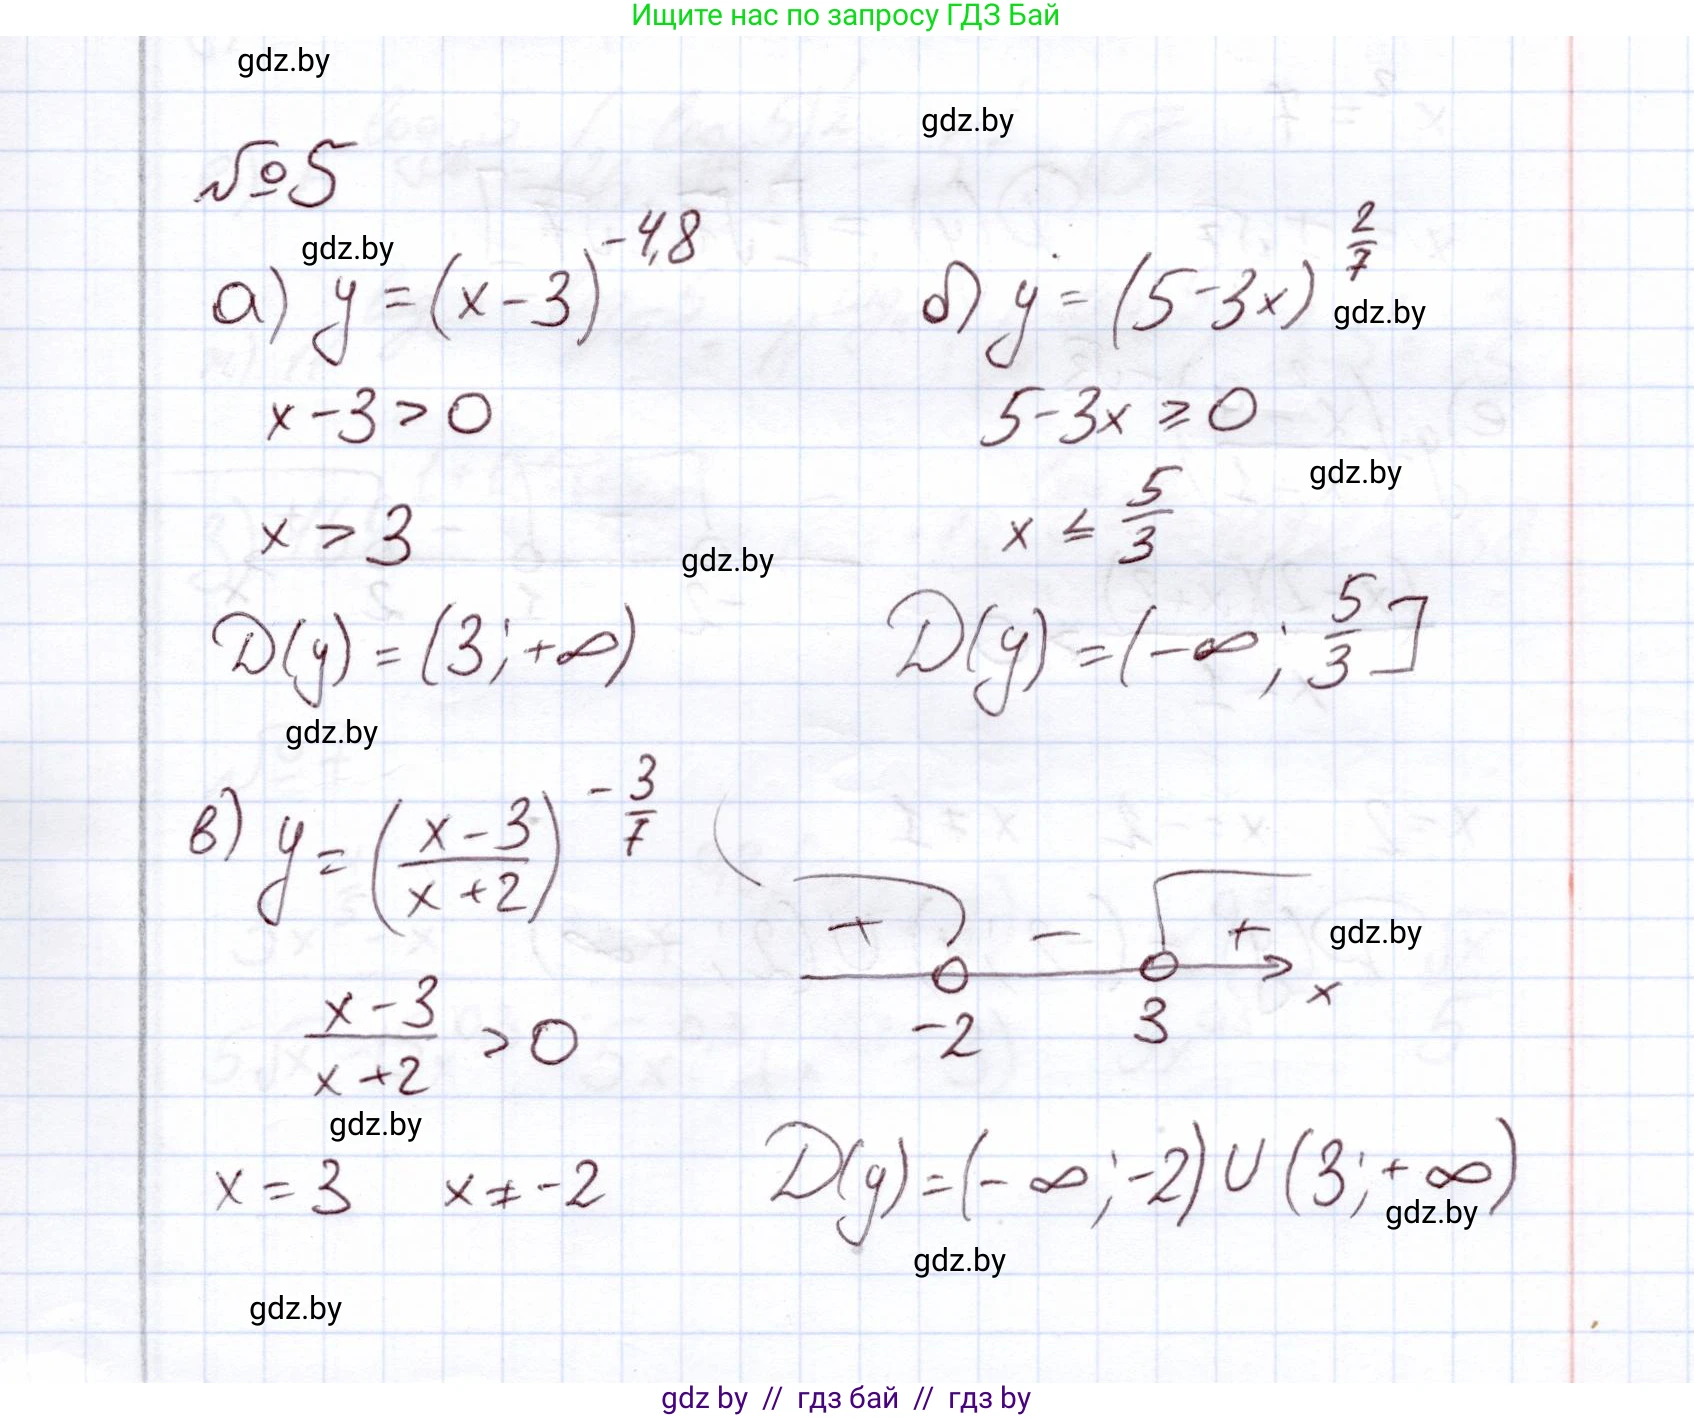 Ищите нас по запросу ГДЗ Бай
gdz.by
gdz.by
№5
gdz.by
а) y = (x - 3)^{-4,8}
б) y = (5 - 3x)^{2/7}
gdz.by
x - 3 > 0
5 - 3x ≥ 0
gdz.by
x > 3
x ≤ 5/3
gdz.by
D(y) = (3; +∞)
D(y) = (-∞; 5/3]
gdz.by
в) y = ((x - 3)/(x + 2))^{-3/7}
+ - +
gdz.by
-2 3 x
(x - 3)/(x + 2) > 0
gdz.by
x = 3 x ≠ -2
D(y) = (-∞; -2) ∪ (3; +∞)
gdz.by
gdz.by
gdz.by
gdz.by // гдз бай // гдз by